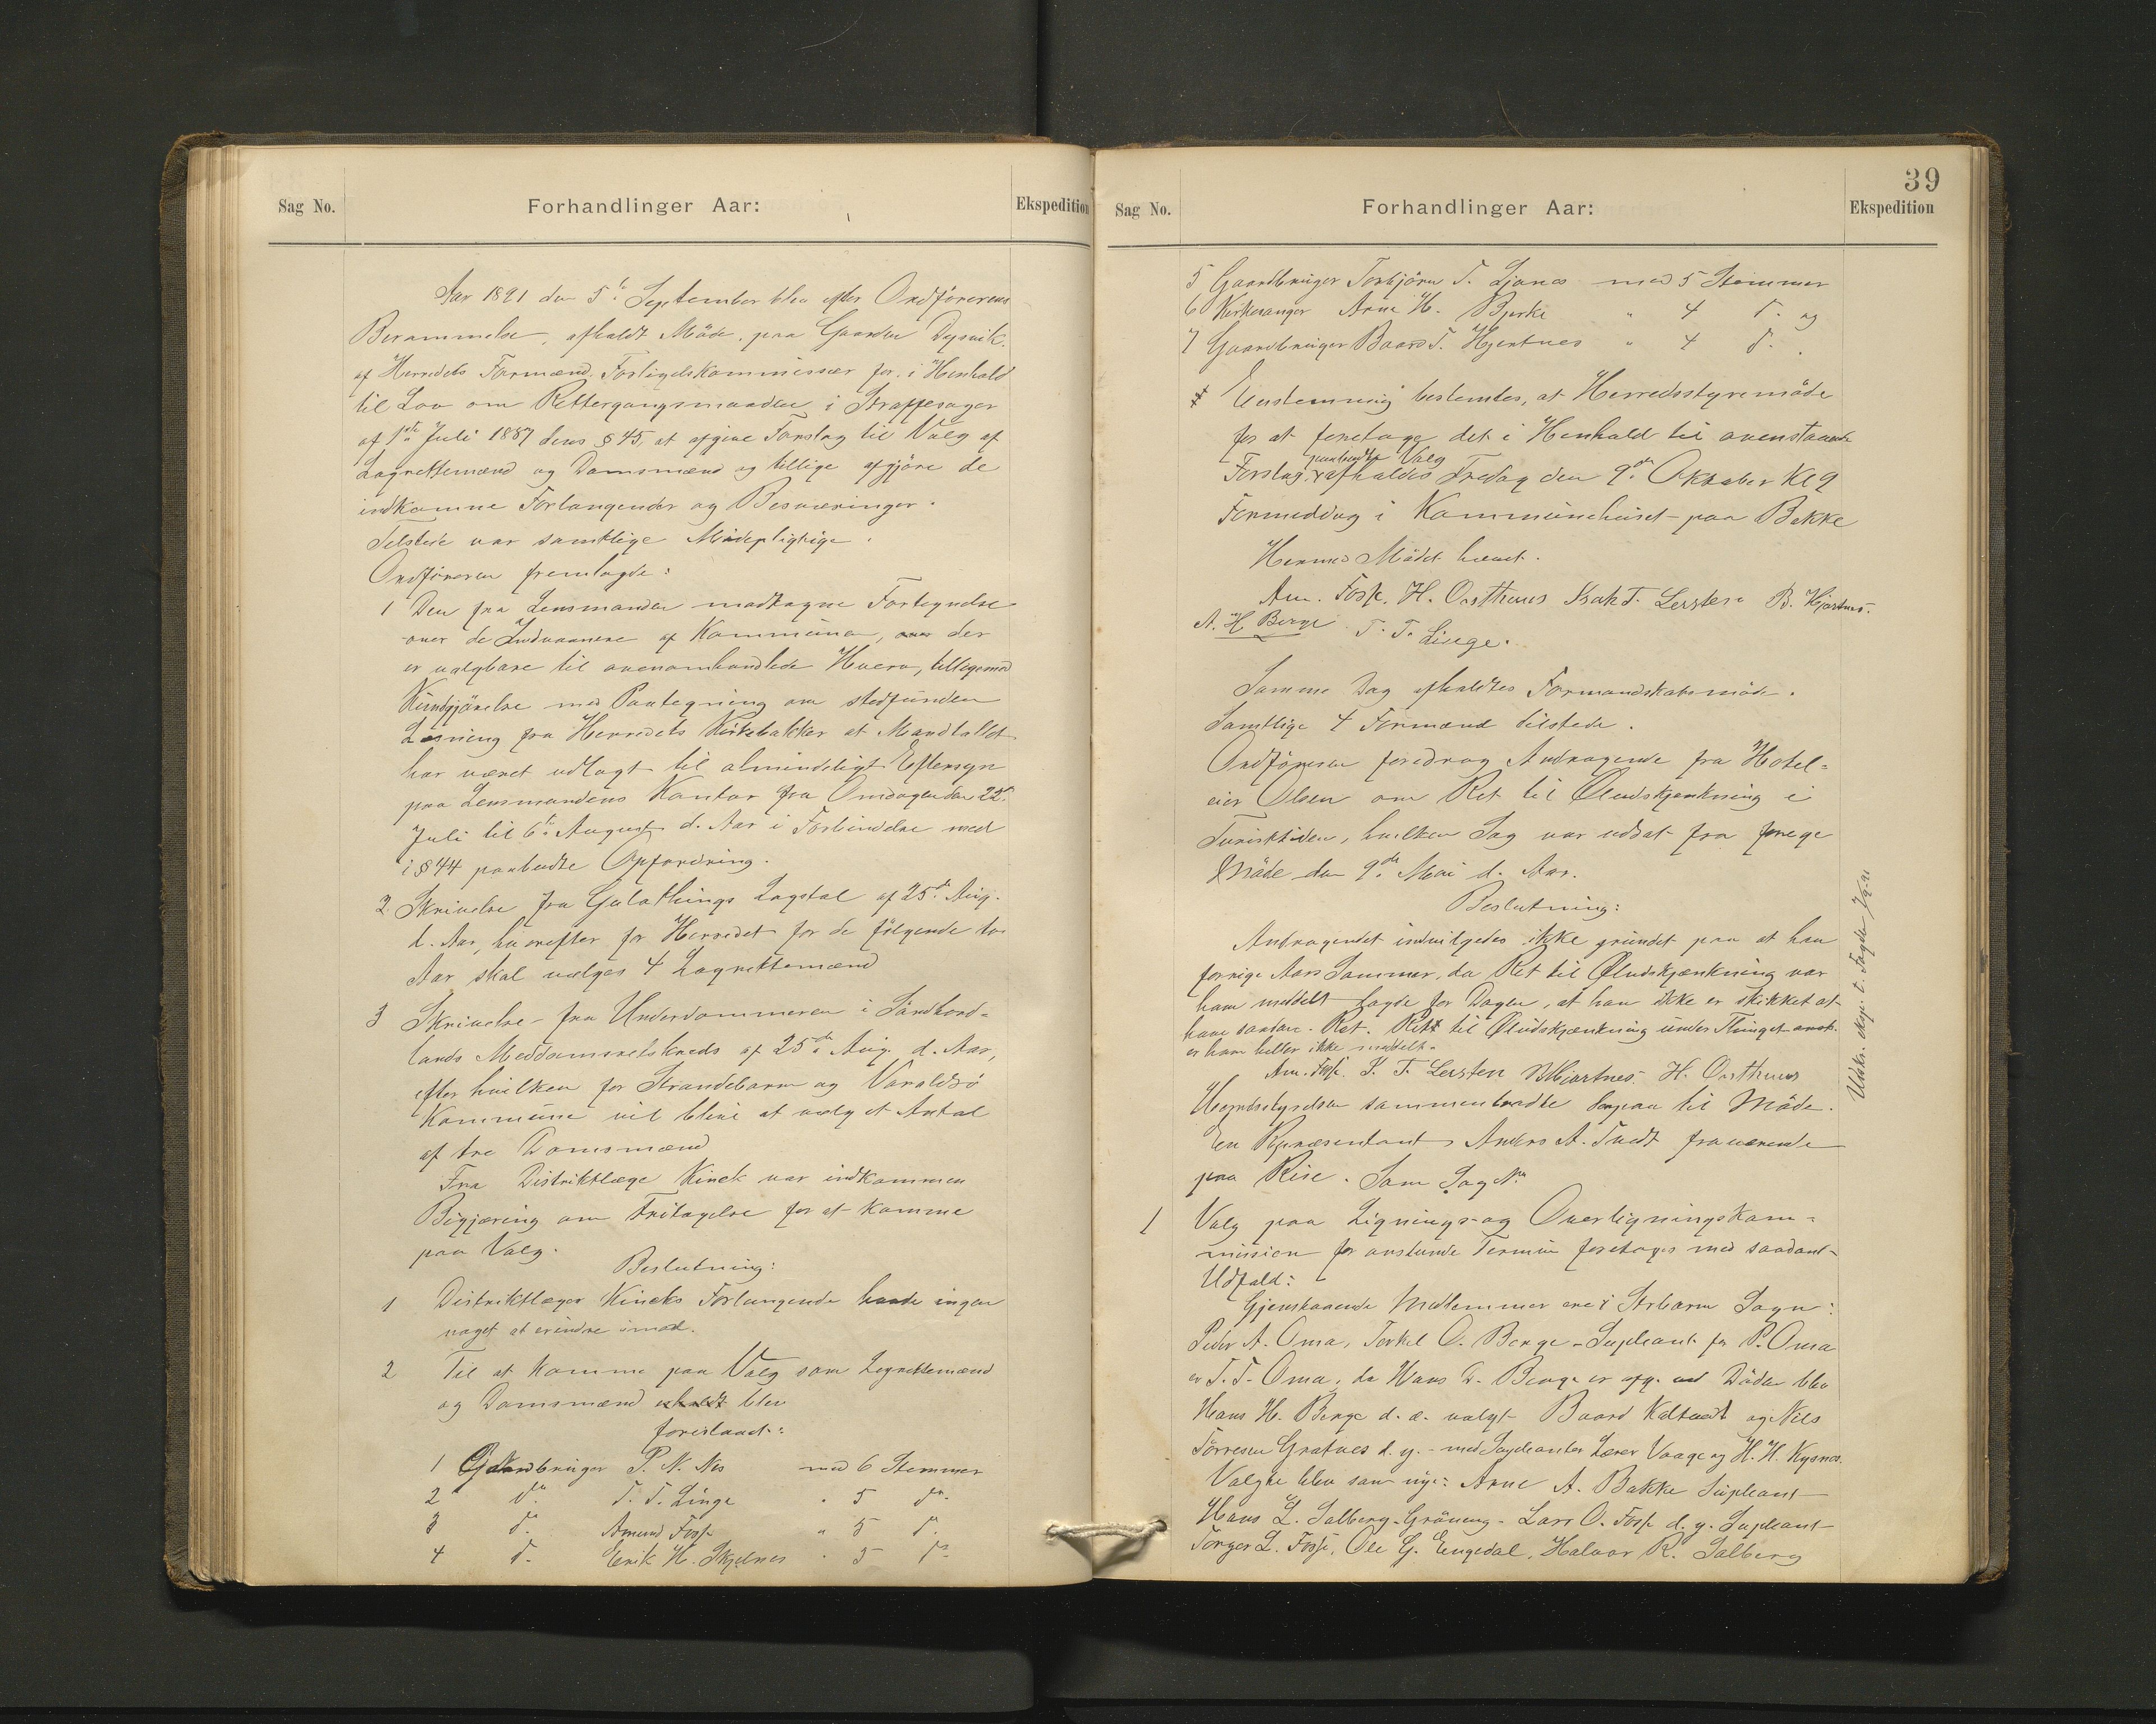 Sag No. Forhandlinger Aar: Ekspedition
Aar 1891 den 5te September blev efter Ordförerens
Berammelse, afholdt Möde, paa Gaarden Dysvik
af Herredets Formænd Forligelskommissær for i Henhold
til Lov om Rettergangsmaaden i Straffesager
af 1ste Juli 1887 dens § 45, at afgive Forslag til Valg af
Lagrettemænd og Domsmænd og tillige afgjöre de
indkomne Forlangender og Besværinger.
Tilstede var samtlige Mödepligtige.
Ordföreren fremlagde:
1 Den fra Lensmanden modtagne Fortegnelse
over de Indvaanere af Kommunen, der
er valgbare til ovenomhandlede Hverv, tilligemed
Kundgjörelse med Paategning om stedfunden
Læsning fra Herredets Kirkebakker at Mandtallet
har været udlagt til almindeligt Eftersyn
paa Lensmandens Kontor fra Onsdagen den 22.
Juli til 6te August d. Aar i Forbindelse med
i § 44 paabudte Opfordring.
2. Skrivelse fra Gulathings Lagstol af 25de Aug.
d. Aar, hvorefter for Herredet for de fölgende to
Aar skal vælges 4 Lagrettemænd
3 Skrivelse fra Underdommeren i Söndhord-
lands Meddomsretskreds af 25de Aug. d. Aar,
efter hvilken for Strandebarm og Varaldsö
Kommune vil blive at valg et Antal
af tre Domsmænd
Fra Distriktlæge Kinck var indkommen
Begjæring om Fritagelse for at komme
paa Valg.
Beslutning:
1 Distriktlæger Kincks Forlangende havde ingen
noget at erindre imod.
2 Til at komme paa Valg som Lagrettemænd
og Domsmænd blev
foreslaaet:
1 Gaardbruger P. N. Nes med 6 Stemmer
2 do. T. T. Linge " 5 do.
3 do. Amund Fosse " 5 do.
4 do. Eirik H. Skjelnes " 5 do.
39
Sag No. Forhandlinger Aar: Ekspedition
5 Gaardbruger Torbjörn T. Ljones med 5 Stemmer
6 Kirkesanger Arne H. Bjerke " 4 do. og
7 Gaardbruger Baard T. Hjertnes " 4 do.
Enstemmig bestemtes, at Herredsstyremöde
for at foretage det i Henhold til ovenstaaende
paabudte Valg
Forslag afholdes Fredag den 9de Oktober Kl 9
Formiddag i Kommunehuset paa Bakke
Hermed Mödet hævet.
Am. Fosse. H. Oosthuus Isak T. Lersten B. Hjartnes.
A. H. Berge T. T. Linge.
Samme Dag afholdtes Formandskabsmöde.
Samtlige 4 Formænd tilstede.
Ordföreren foredrog Andragende fra Hotel-
eier Olsen om Ret til Öludskjænkning i
Turisttiden, hvilken Sag var udsat fra forrige
Möde den 9de Mai d. Aar.
Beslutning:
Andragendet indvilgedes ikke grundet paa at han
forrige Aars Sommer, da Ret til Öludskjænkning var
ham meddelt lagde for Dagen, at han ikke er skikket at
have saadan Ret. Rett til Öludskjænkning under Thinget
er ham heller ikke meddelt.
Am. Fosse. I. T. Lersten BHjartnes. H. Oosthuus
Herredsstyrelsen sammentraadte derpaa til Möde.
En Repræsentant Anders A. Tvedt fraværende
paa Reise. Som Sag No
1 Valg paa Lignings- og Overligningskom-
mission for anstunde Termin foretoges med saadant
Udfald:
Gjenstaaende Medlemmer ere i Strbarm Sogn:
Peder A. Oma, Torkel O. Berge - Supleant for P. Oma
er T. T. Oma, da Hans D. Berge er afg. ved Döden blev
Hans H. Berge d. æ. valgt Baard Kaltvedt og Nils
Törresen Gratnes d. y. - med Supleanter Lærer Vaage og H. H. Kysnes.
Valgte blev som nye: Arne A. Bakke Supleant
Hans L. Solberg-Gröneng - Lars O. Fosse d. y. Supleant
Torger L. Fosse, Ole G. Engedal, Halvor R. Solberg